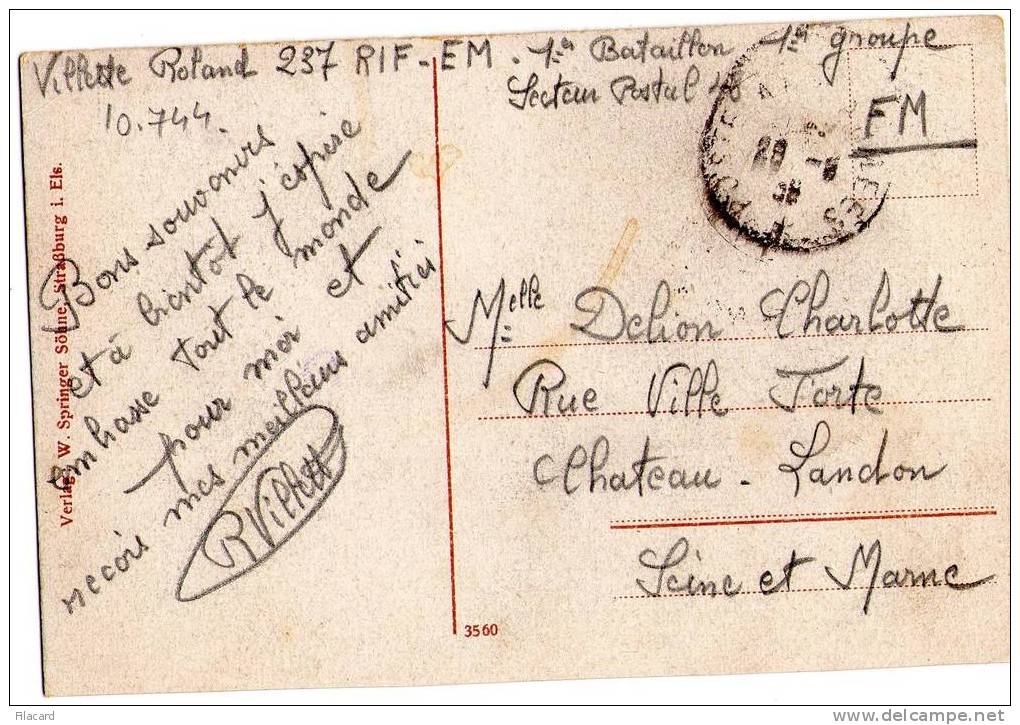 Villette Roland 237 RIF-EM. 1er Bataillon 1er groupe
Secteur Postal 
10.744.
FM
POSTE AUX ARMEES
28 -8
39
Bons souvenirs
et à bientot j'éspère
embrasse tout le monde
pour moi et
recois mes meilleurs amitiés
RVillette
Melle Delion Charlotte
Rue Ville Forte
Chateau-Landon
Seine et Marne
Verlag: W. Springer Söhne, Straßburg i. Els.
3560
Filacard
www.delcampe.net